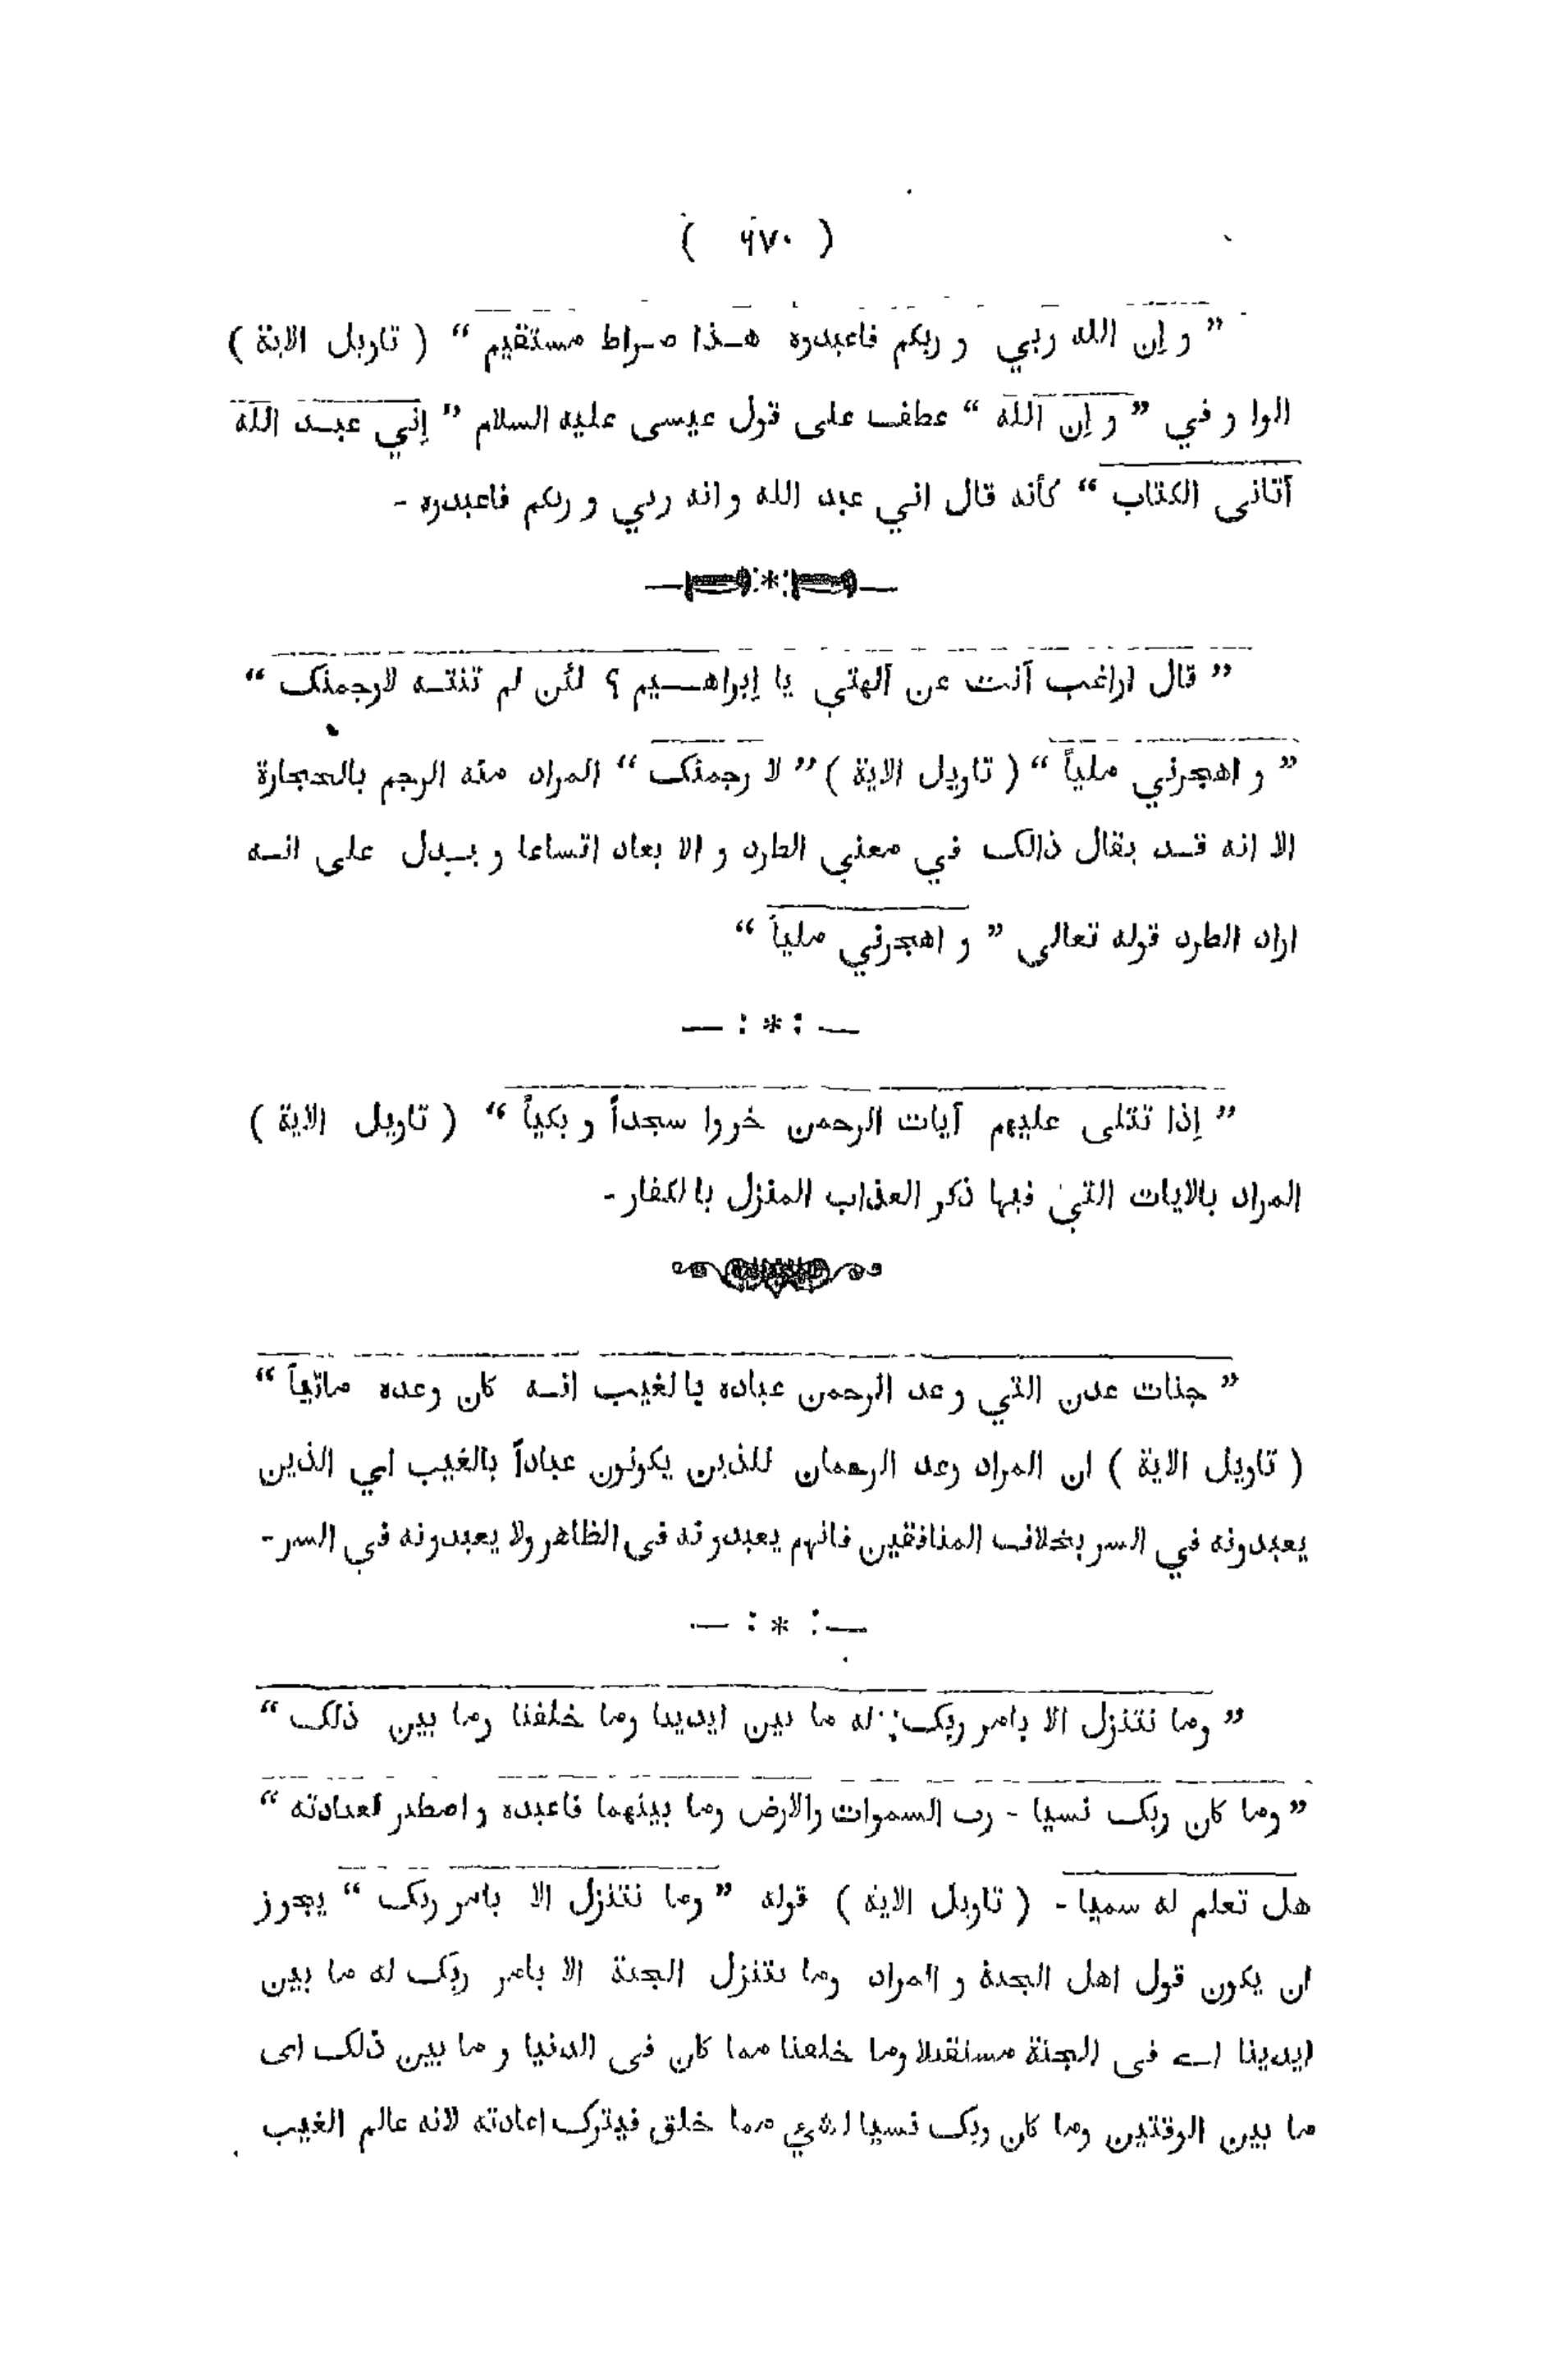 ( ٦٧٠ )
” و إن الله ربي و ربكم فاعبدوه هـذا صـراط مستقيم “ ( تاويل الاية )
الوا و في ” و إن الله “ عطف على قول عيسى عليه السلام ” إني عبـد الله
آتانى الكتاب “ كأنه قال اني عبد الله و انه ربي و ربكم فاعبدوه -
— :*: —
” قال اراغب آنت عن آلهتي يا إبراهـــيم ؟ لئن لم تنتـه لارجمنك “
” و اهجرني ملياً “ ( تاويل الاية ) ” لا رجمنك “ المراد منه الرجم بالحجارة
الا انه قـد يقال ذالك في معني الطرد و الا بعاد اتساعا و يـدل على انـه
اراد الطرد قوله تعالى ” و اهجرني ملياً “
— : * : —
” إذا تتلى عليهم آيات الرحمن خروا سجداً و بكياً “ ( تاويل الاية )
المراد بالايات التي فيها ذكر العذاب المنزل بالكفار -
” جنات عدن التي وعد الرحمن عباده بالغيب انـه كان وعده ماتياً “
( تاويل الاية ) ان المراد وعد الرحمان للذين يكونون عباداً بالغيب اي الذين
يعبدونه في السر بخلاف المنافقين فانهم يعبدونه فى الظاهر ولا يعبدونه في السر -
— : * : —
” وما نتنزل الا بامر ربك له ما بين ايدينا وما خلفنا وما بين ذلك “
” وما كان ربك نسيا - رب السموات والارض وما بينهما فاعبده و اصطبر لعبادته “
هل تعلم له سميا - ( تاويل الاية ) قوله ” وما نتنزل الا بامر ربك “ يجوز
ان يكون قول اهل الجنة و المراد وما نتنزل الجنة الا بامر ربك له ما بين
ايدينا اے فى الجنة مستقبلا وما خلفنا مما كان فى الدنيا و ما بين ذلك اى
ما بين الوقتين وما كان ربك نسيا لشيء مما خلق فيترك اعادته لانه عالم الغيب